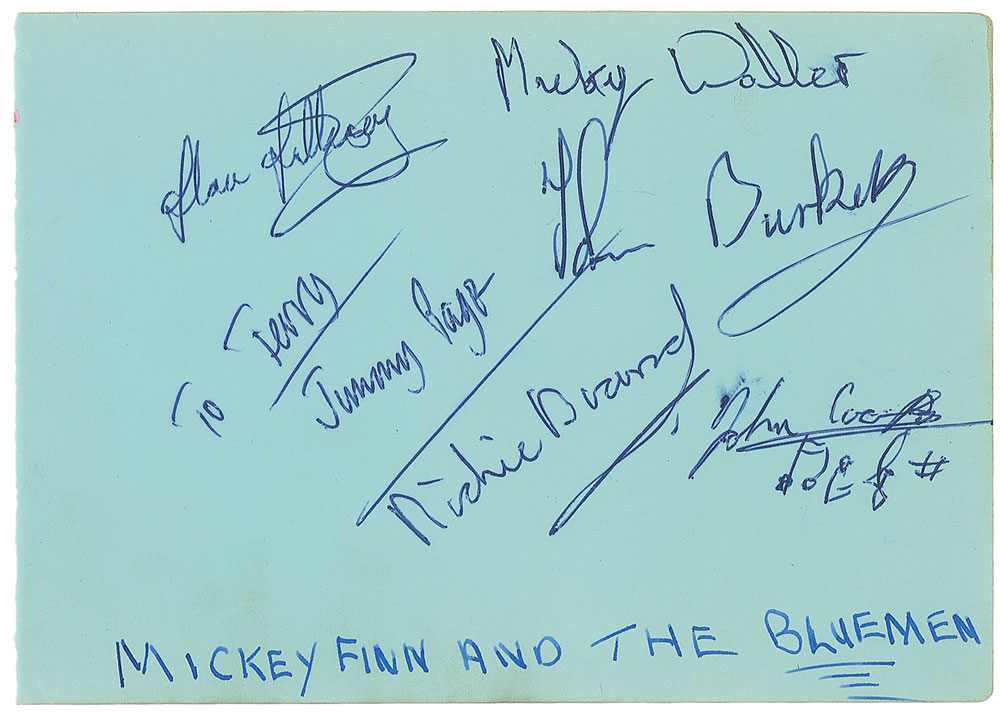 Micky Waller
Alan
John Burkett
To Terry
Jimmy Page
Richie
John
MICKEY FINN AND THE BLUEMEN